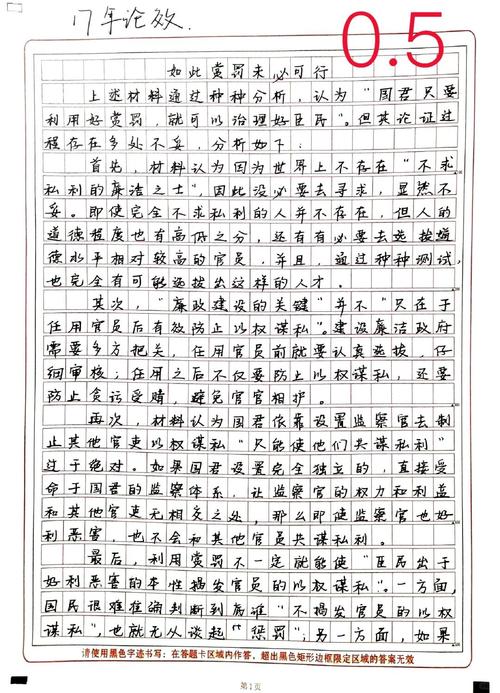 17年论效.
0.5
如此赏罚未必可行
上述材料通过种种分析，认为“国君只要
利用好赏罚，就可以治理好臣民”。但其论证过
程存在多处不妥，分析如下：
首先，材料认为因为世界上不存在“不求
私利的廉洁之士”，因此没必要去寻求，显然不
妥。即使完全不求私利的人并不存在，但人的
道德程度也有高低之分，还有有必要去选拔道
德水平相对较高的官员，并且，通过种种测试，
也完全有可能选拔出这样的人才。
其次，“廉政建设的关键”并不“只在于
任用官员后有效防止以权谋私”。建设廉洁政府
需要多方把关，任用官员前就要认真选拔，仔
细审核；任用之后不仅要防止以权谋私，还要
防止贪污受贿，避免官官相护。
再次，材料认为国君依靠设置监察官去制
止其他官吏以权谋私“只能使他们共谋私利”
过于绝对。如果国君设置完全独立的，直接受
命于国君的监察体系，让监察官的权力和利益
和其他官吏无相交之处，那么即使监察官也好
利恶害，也不会和其他官员共谋私利。
最后，利用赏罚不一定就能使“臣民出于
好利恶害的本性揭发官员的以权谋私”。一方面，
国民很难准确判断到底谁“不揭发官员的以权
谋私”，也就无从谈起“惩罚”；另一方面，如果
请使用黑色字迹书写：在答题卡区域内作答，超出黑色矩形边框限定区域的答案无效
第1页